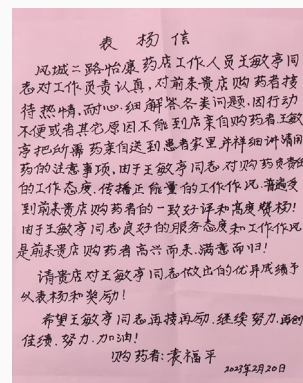 表杨信
风城二路怡康药店工作人员王敏亭同
志对工作员责认真,对前来贵店购药者接
待热情,耐心.细解答各类问题,因行动
不便或者其它原因不能到店亲自购药者王敏
亭把所需药亲自送到患者家里并祥细讲清用
药的注意事项,由于王敏亭同志对购药负责的
的工作态度.传播正能量的工作作风.普遍受
到前来贵店购药者的一致好评和高度赞杨!
由于王敏亭同志良好的服务态度和工作作风
是前来贵店购药者高兴而来.满意而归!
请贵店对王敏亭同志做出的优异成绩予
以表杨和奖励!
希望王敏亭同志再接再励.继续努力.再创
佳绩.努力.加油!
购药者:袁福平
2023年2月20日